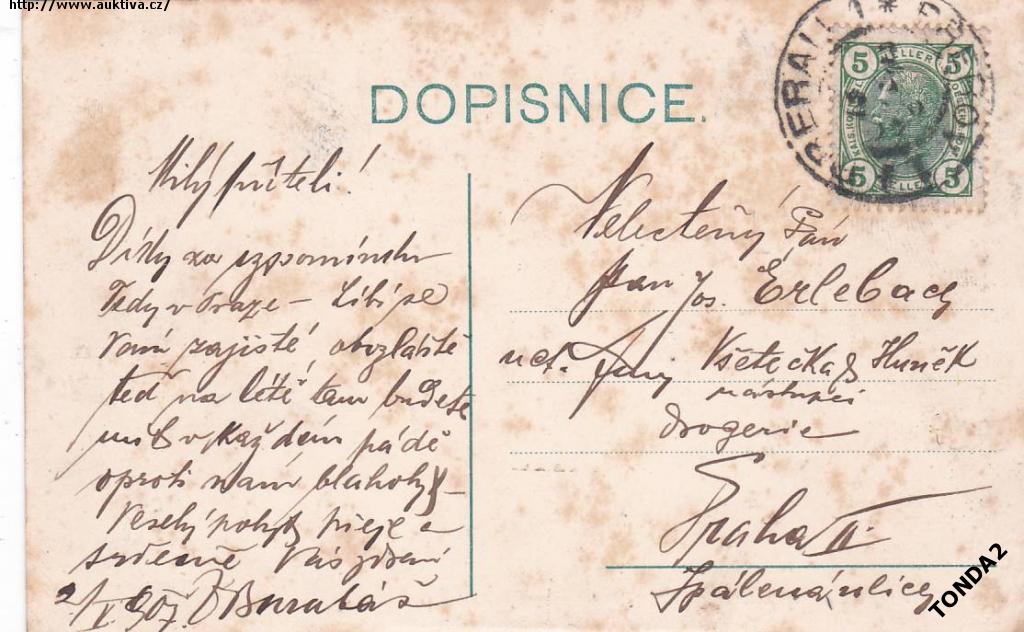 http://www.auktiva.cz/
DOPISNICE.
PRERAU 1 * PŘEROV 1
5 HELLER 5
5 HELLER 5
Milý příteli!
Díky za vzpomínku
Tedy v Praze – Líbí se
Vám zajisté, obzláště
teď na létě tam budete
mít v každém pádě
oproti nám blahobyt –
Veselý pobyt přeje a
srdečně Vás zdraví
2/V 907. Barabáš
Velectěný Pán
pan Jos. Erlebach
uct. firmy Všetečka & Huněk
nástupci
drogerie
Praha II.
Spálená ulice
TONDA2